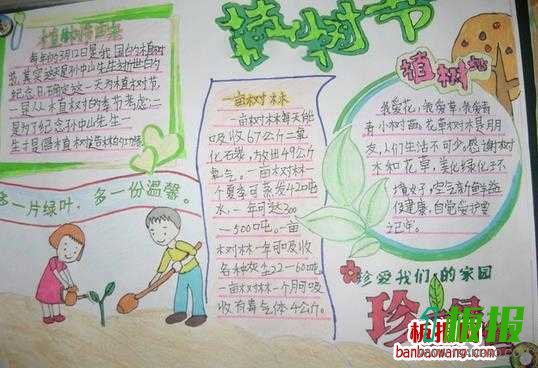 植树节
植树节的由来
每年的3月12日是我国的植树
节,其实这是孙中山先生逝世的
纪念日,确定这一天为植树节
一是从植树的季节考虑;二
是为了纪念孙中山先生一
生
多一片绿叶,多一份温馨。
一亩树林
一亩树林每天能
吸收67公斤二氧
化碳,放出49公斤
氧气。一亩树林一
个夏季可蒸发420吨
水,一年可达300
—500吨。一亩
树林一年可吸收
各种灰尘22—60吨,
一亩树林一个月可吸
收有毒气体4公斤。
植树
我爱花,我爱草,我爱青
青小树苗。花草树木是朋
友,人们生活不可少。感谢树
木和花草,美化绿化环
境好,空气新鲜
促健康,自觉爱护要
记牢。
珍爱我们的家园
珍
板报
banbaowang.com